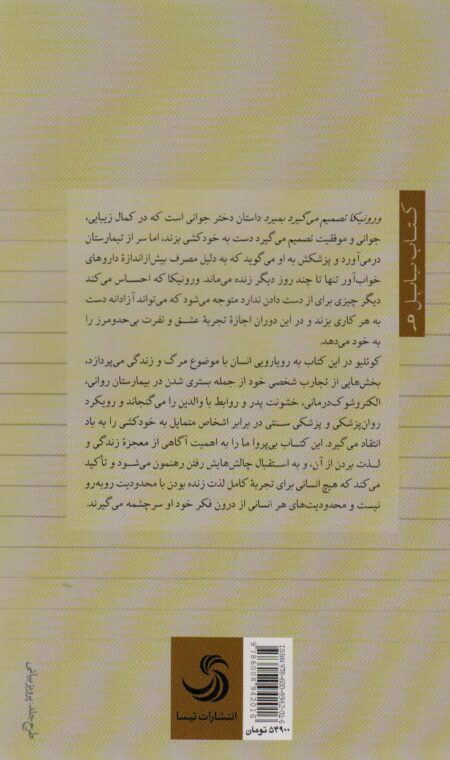 کتاب بانیل م
ورونیکا تصمیم می‌گیرد بمیرد داستان دختر جوانی است که در کمال زیبایی،
جوانی و موفقیت تصمیم می‌گیرد دست به خودکشی بزند، اما سر از تیمارستان
درمی‌آورد و پزشکش به او می‌گوید که به دلیل مصرف بیش‌ازاندازهٔ داروهای
خواب‌آور تنها تا چند روز دیگر زنده می‌ماند. ورونیکا که احساس می‌کند
دیگر چیزی برای از دست دادن ندارد متوجه می‌شود که می‌تواند آزادانه دست
به هر کاری بزند و در این دوران اجازهٔ تجربهٔ عشق و نفرت بی‌حدومرز را
به خود می‌دهد.
کوئلیو در این کتاب به رویارویی انسان با موضوع مرگ و زندگی می‌پردازد،
بخش‌هایی از تجارب شخصی خود از جمله بستری شدن در بیمارستان روانی،
الکتروشوک‌درمانی، خشونت پدر و روابط با والدین را می‌گنجاند و رویکرد
روان‌پزشکی و پزشکی سنتی در برابر اشخاص متمایل به خودکشی را به باد
انتقاد می‌گیرد. این کتاب بی‌پروا ما را به اهمیت آگاهی از معجزهٔ زندگی و
لذت بردن از آن، و به استقبال چالش‌هایش رفتن رهنمون می‌شود و تأکید
می‌کند که هیچ انسانی برای تجربهٔ کامل لذت زنده بودن با محدودیت روبه‌رو
نیست و محدودیت‌های هر انسانی از درون فکر خود او سرچشمه می‌گیرند.
طرح جلد: پرویز بیانی
انتشارات تیسا
ISBN 978-600-8942-01-6
9786008942016
۵۴۹۰۰ تومان